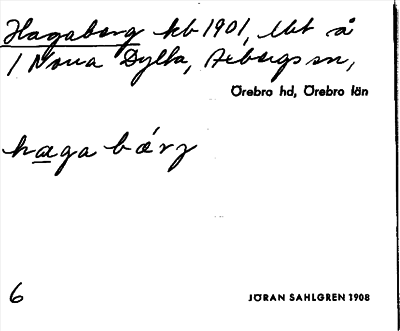 Hagaberg kb 1901, lht å
1 Norra Dylta, Axbergs sn,
Örebro hd, Örebro län
haga bærj
6
JÖRAN SAHLGREN 1908